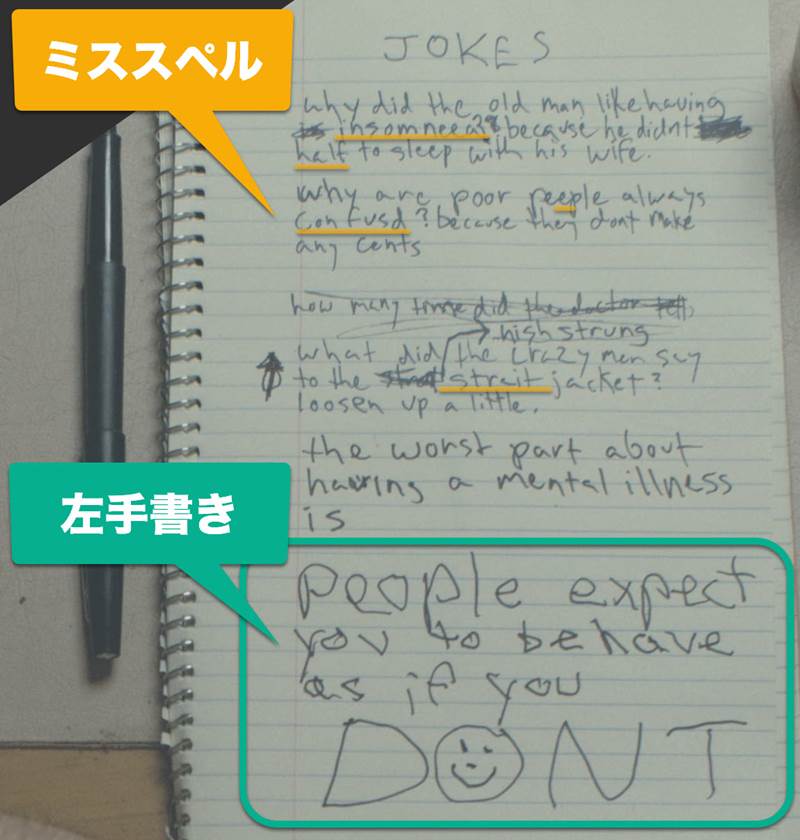 ミススペル
JOKES
why did the old man like having
insomneea? because he didnt
half to sleep with his wife.
why are poor peeple always
confusd? because they dont make
any cents
how many time did the doctor tell
high strung
what did the crazy man say
to the strait jacket?
loosen up a little.
左手書き
the worst part about
having a mental illness
is
people expect
you to behave
as if you
DONT